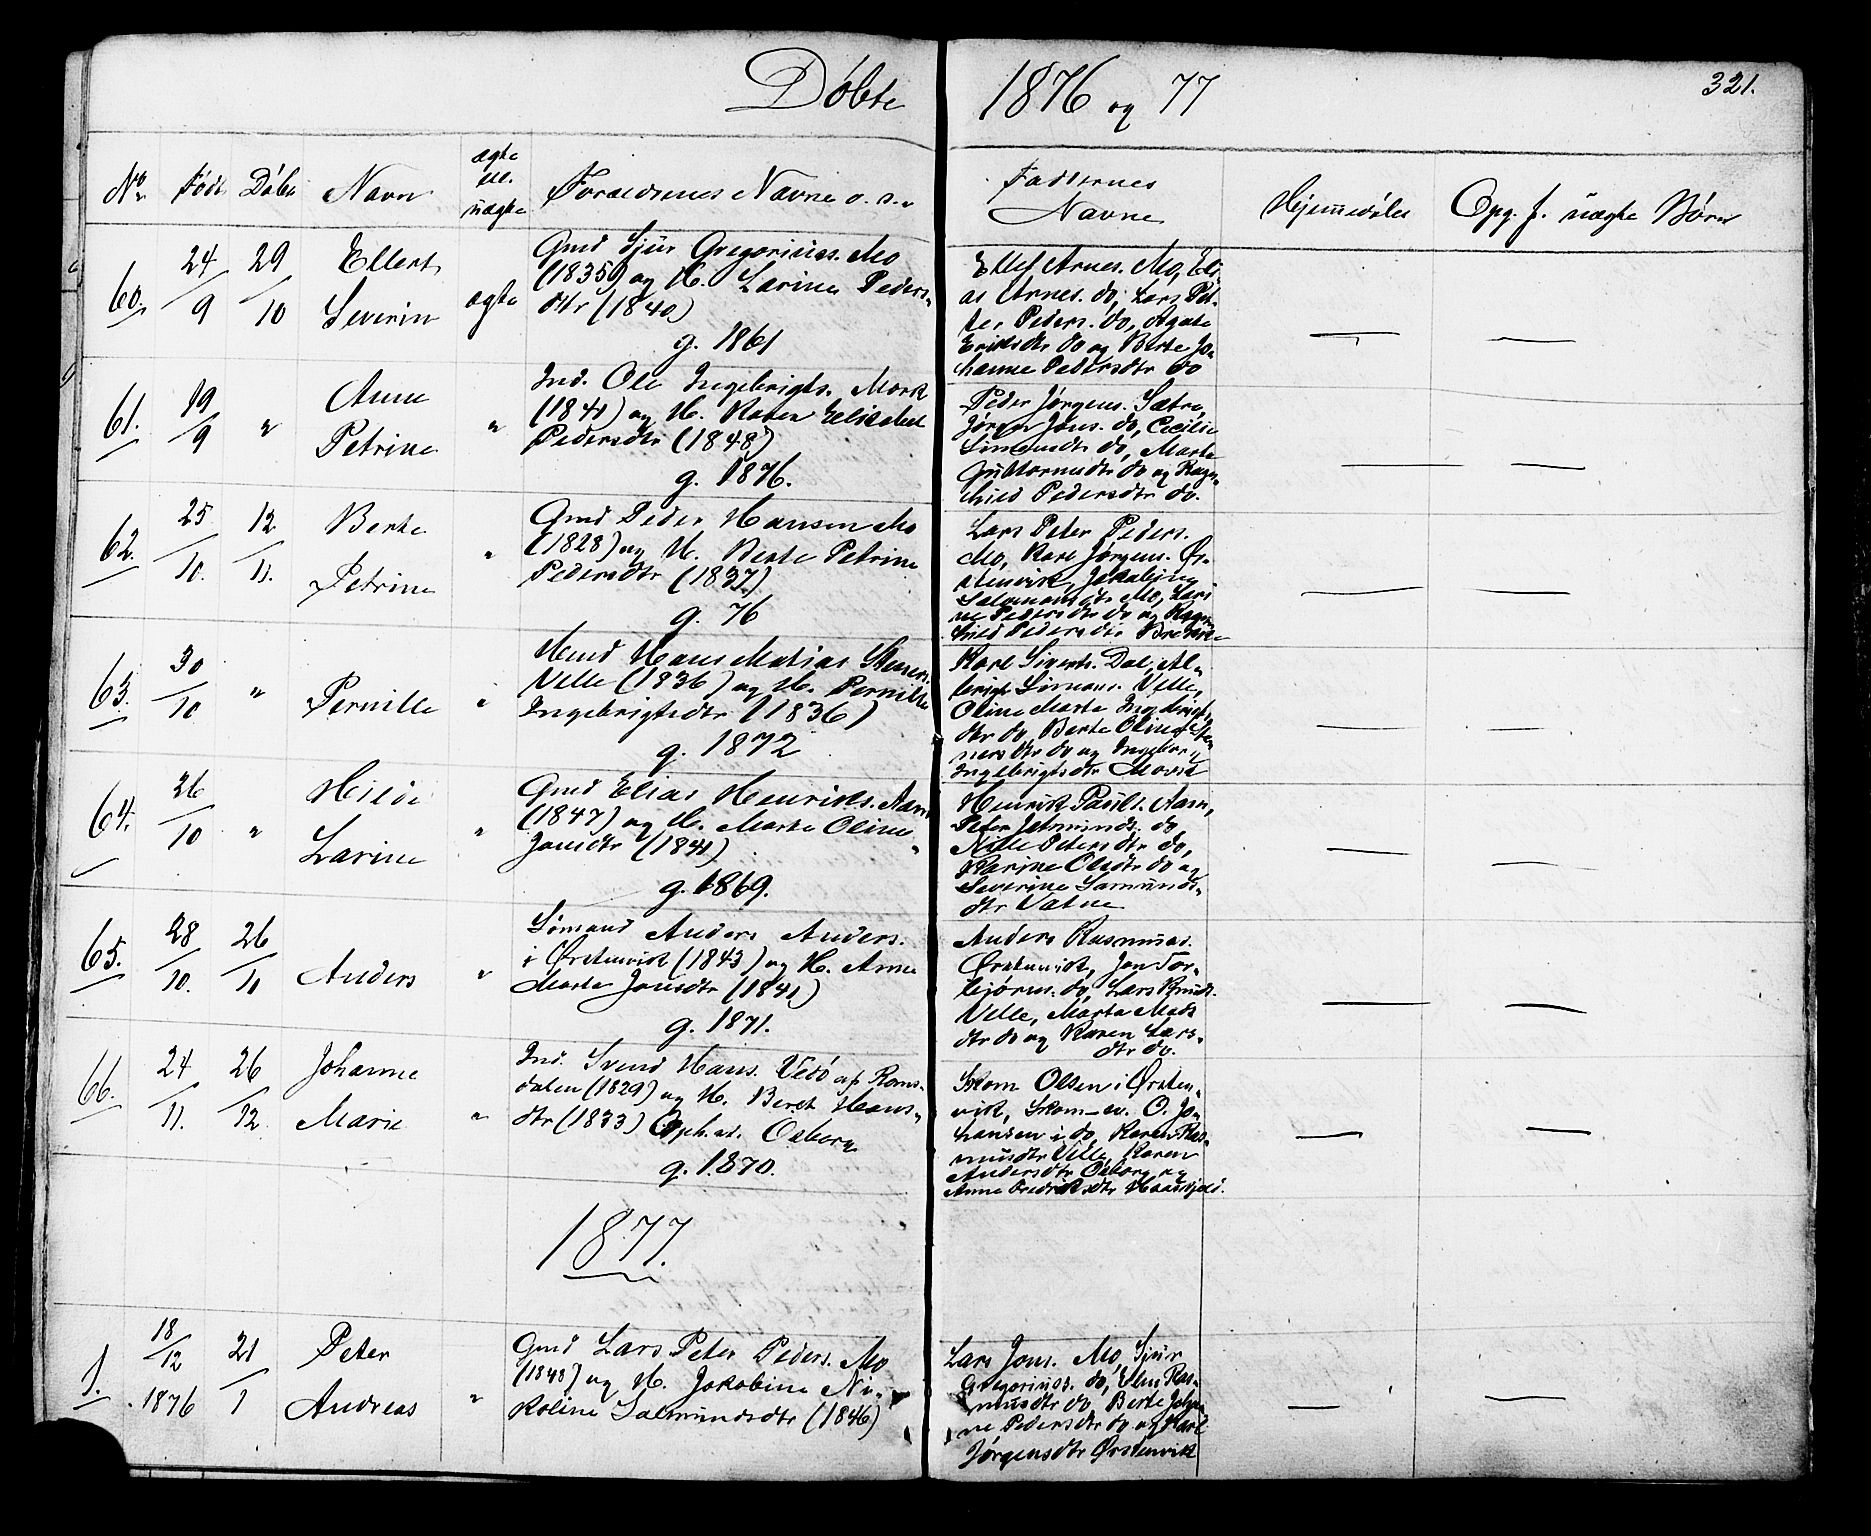 Döbte 1876 og 77 321.
No. Födt Döbt Navn ægte ell. uægte Forældrenes Navne o. s. v. Faddernes Navne Hjemmedøbt Opg. f. uægte Börn
60. 24/9 29/10 Ellert Severin ægte
Gmd Sjur Gregorius. Mo
(1835) og H. Larine Peders-
dtr (1840)
g. 1861
Ellef Arnes. Mo, Eli-
as Arnes. do, Lars Pet-
ter Peders. do, Agate
Eriksdtr do og Berte Jo-
hanne Pedersdtr do
— —
61. 19/9 " Anne Petrine "
Ind. Ole Ingebrigts. Mork
(1841) og H. Karen Elisabet
Pedersdtr (1848)
g. 1876.
Peder Jørgens. Sætre,
Jørgen Jons. do, Cecilie
Simensdtr do, Marte
Guttormsdtr do og Ragn-
hild Pedersdtr do.
— —
62. 25/10. 12/11. Berte Petrine "
Gmd Peder Hansen Mo
(1828) og H. Berte Petrine
Pedersdtr (1837)
g. 76
Lars Peter Peders.
Mo, Karl Jørgens. Ør-
stenvik, Jakobine
Salomonsdtr Mo, Lari
ne Pedersdtr do og Ragn-
hild Pedersdtr
— —
63. 30/10 " Pernille "
Hans Matias
Velle (1836) og H. Pernille
Ingebrigtsdtr (1836)
g. 1872
Karl Siverts. Dal, Al-
brigt Simens. Velle,
Oline Marte Ingebrigts-
dtr do, Berte Oline Sten
nersdtr do og Ingebor
Ingebrigtsdtr
— —
64. 26/10 " Hilde Larine "
Gmd Elias Henriks. Aam
(1847) og H. Marte Oline
Jonsdtr (1841)
g. 1869.
Henrik Pauls. Aam,
Peter do,
Nille Petersdtr do,
Karine Olsdtr do og
Severine Samunds-
dtr Vatne
— —
65. 28/10. 26/11 Anders "
Sömand Anders Anders.
i Ørstenvik (1843) og H. Anne
Marte Jonsdtr (1841)
g. 1871.
Anders Rasmus.
Ørstenvik, Jon Tor-
bjørns. do, Lars Knuds.
Velle, Marta Mads
dtr do og Karen Lars-
dtr do.
— —
66. 24/11. 26/12. Johanne Marie "
Ind. Svend Hans. Vedö af Roms-
dalen (1829) og H. Beret Hans-
dtr (1833) Oph.st. Osborg
g. 1870.
Skom Olsen i Ørsten-
vik, Skom-sv. O. Jo-
hansen i do, Karen Ras-
musdtr Velle, Karen
Andersdtr Osborg og
Anne Fredriksdtr
— —
1877.
1. 18/12 1876 21/1 Peter Andreas "
Gmd Lars Peter Peders. Mo
(1848) og H. Jakobine Ni-
koline Salmundsdtr (1846)
Lars Jons. Mo, Sjur
Gregorius. do, Elen Ras-
musdtr do, Berte Johan
ne Pedersdtr do og Karl
Jørgensdtr Ørstenvik
— —